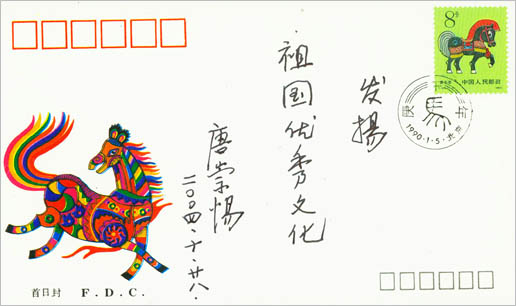 8分
中国人民邮政
庚午
1990·1·5·北京
发揚
祖国优秀文化
唐崇惕
二〇〇四、十、廿八.
首日封 F. D. C.